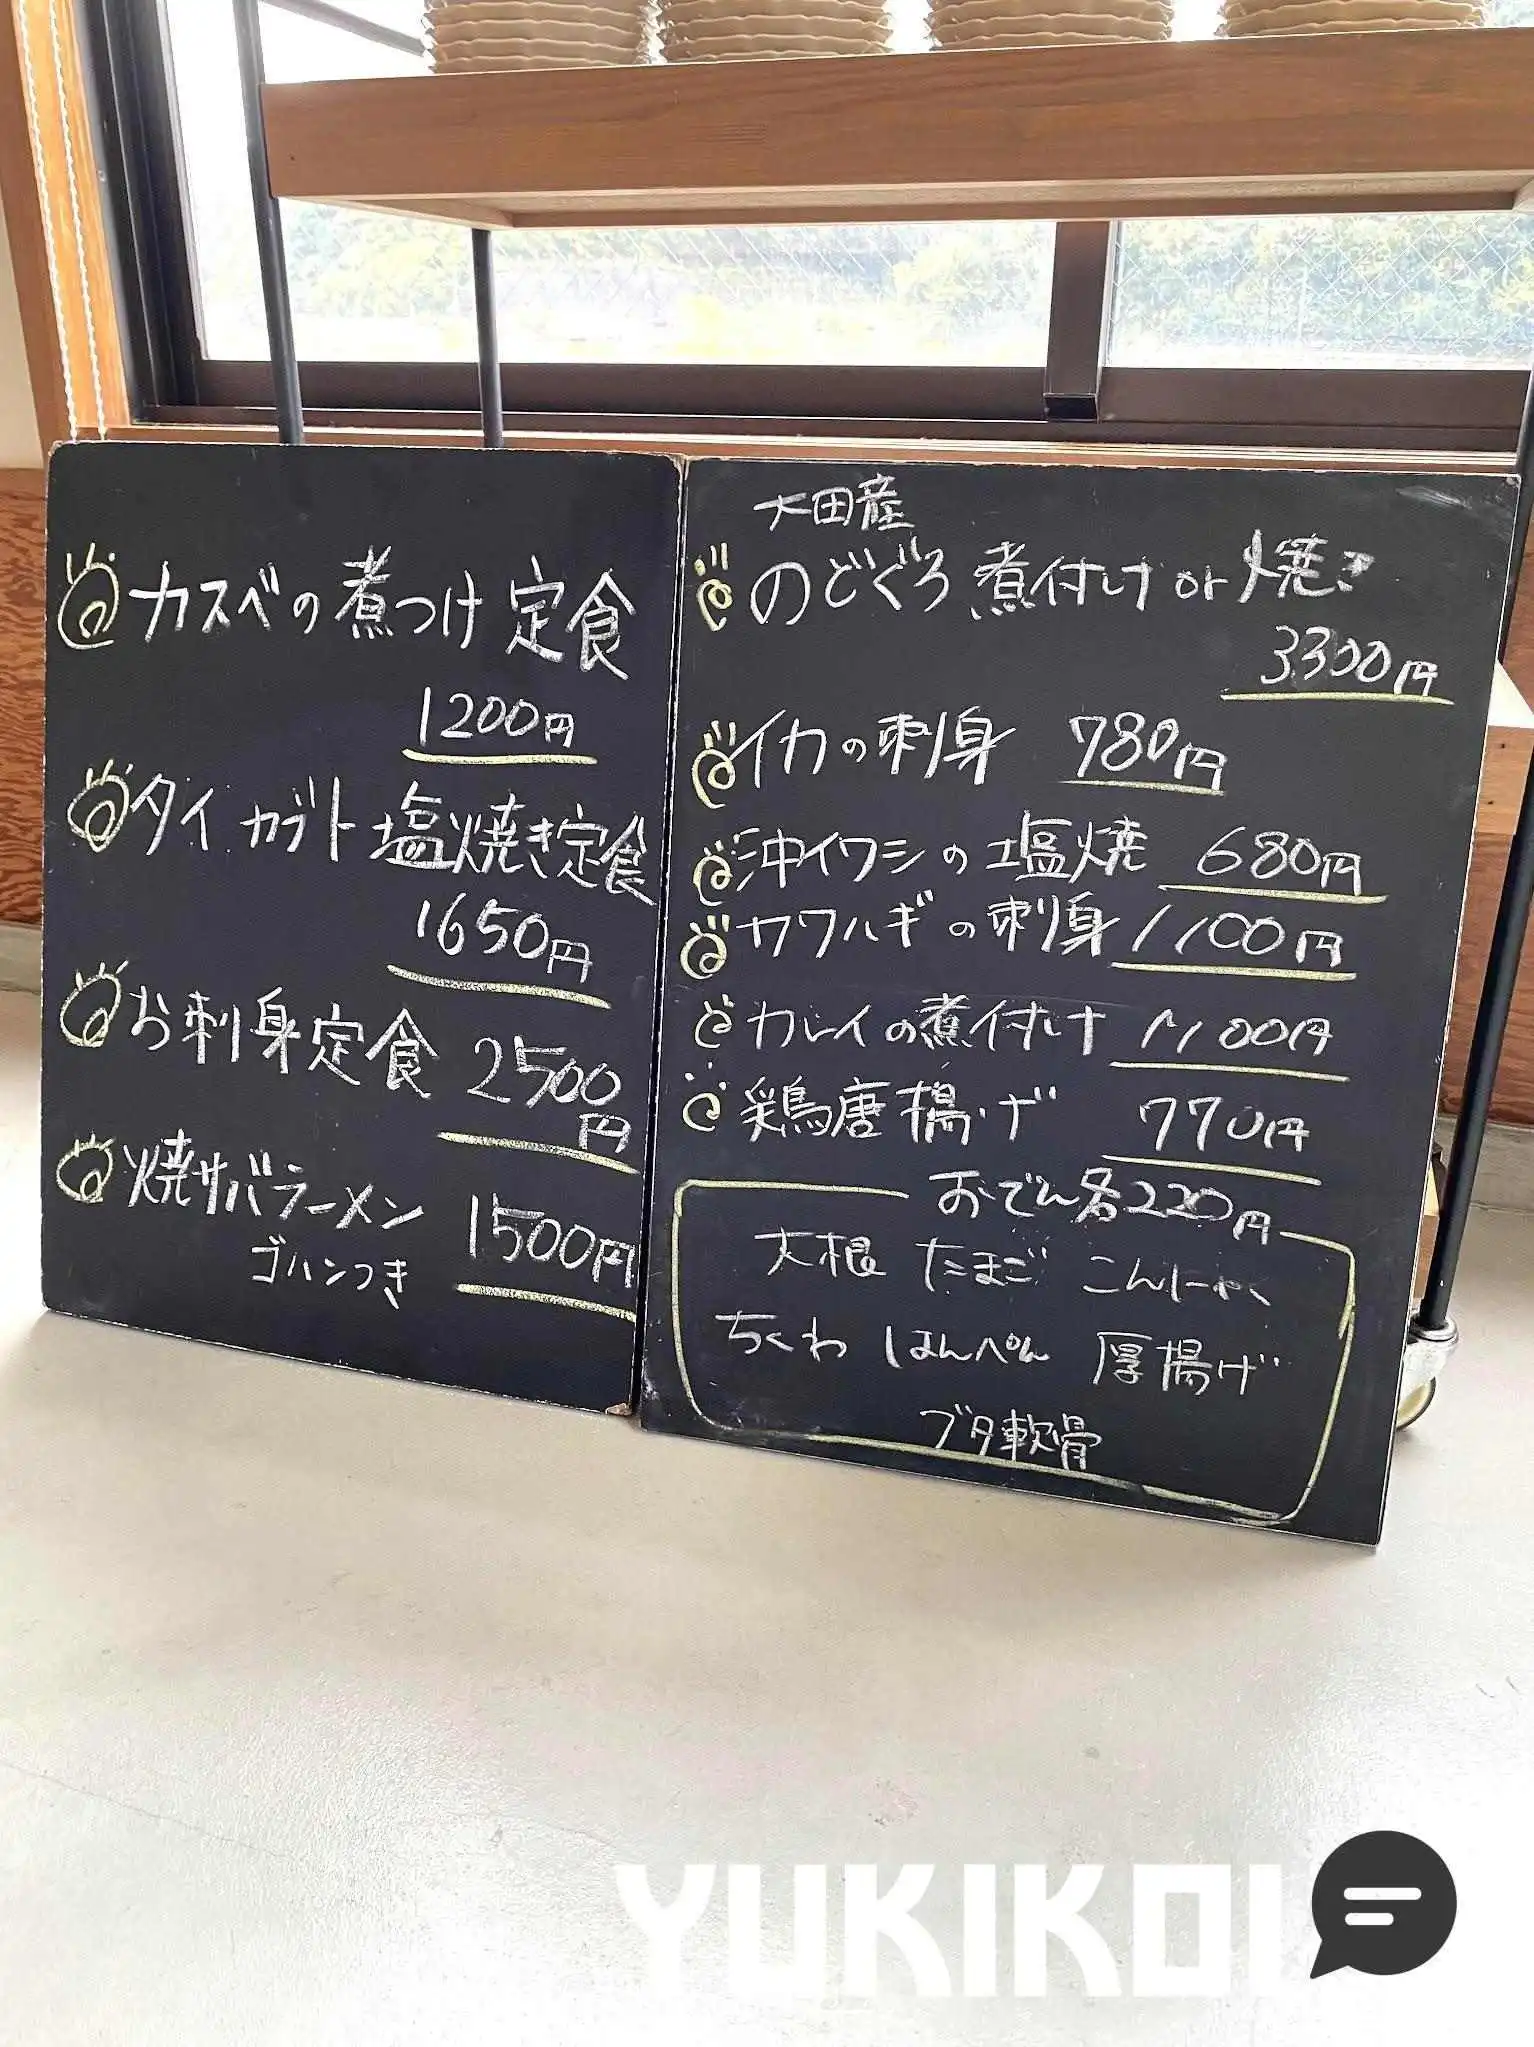 カスベの煮つけ定食
1200円
タイ カブト塩焼き定食
1650円
お刺身定食 2500
円
焼サバラーメン 1500円
ゴハンつき
大田産
のどぐろ 煮付け or 焼き
3300円
イカの刺身 780円
沖イワシの塩焼 680円
カワハギの刺身 1100円
カレイの煮付け 1100円
鶏唐揚げ 770円
おでん各220円
大根 たまご こんにゃく
ちくわ はんぺん 厚揚げ
ブタ軟骨